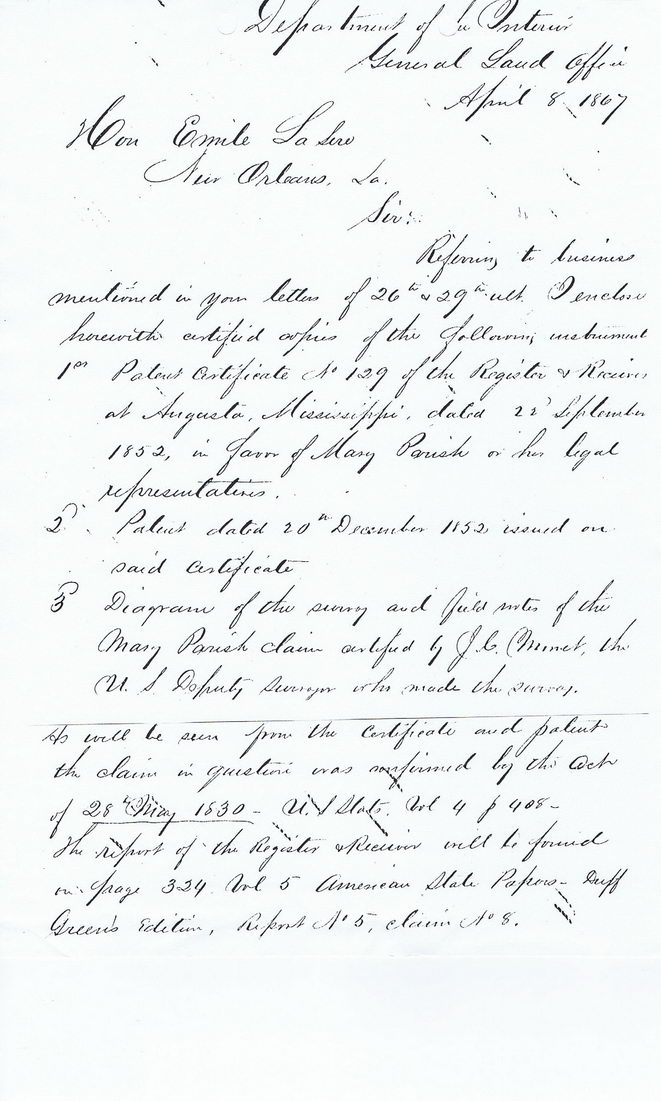 Department of the Interior
General Land Office
April 8 1867
Hon Emile La Sere
New Orleans, La.
Sir:
Referring to business
mentioned in your letters of 26th & 29th ult. I enclose
herewith certified copies of the following instrument
1st Patent Certificate No 129 of the Register & Receiver
at Augusta, Mississippi, dated 22d September
1852, in favor of Mary Parish or her legal
representatives.
2d Patent dated 20th December 1852 issued on
said certificate
3d Diagram of the survey and field notes of the
Mary Parish claim certified by J. C. the
U. S. Deputy Surveyor who made the survey.
As will be seen from the certificate and patent
the claim in question was confirmed by the Act
of 28th May 1830 - U. S. Stats. Vol 4 p 408 -
The report of the Register & Receiver will be found
on page 324 Vol 5 American State Papers - Duff
Green's Edition, Report No 5, claim No 8.